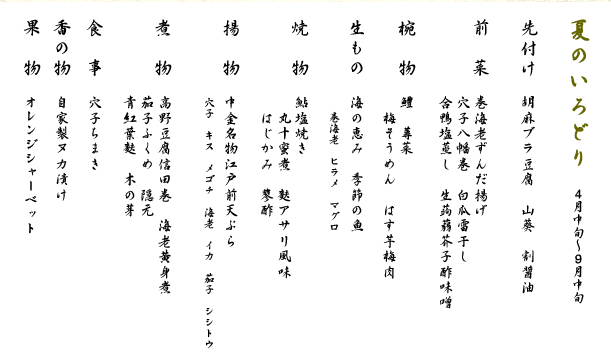 夏のいろどり 4月中旬～9月中旬
先付け 胡麻ブラ豆腐 山葵 割醤油
前菜 巻海老ずんだ揚げ
穴子八幡巻 白瓜雷干し
合鴨塩蒸し 生蒟蒻芥子酢味噌
椀物 鱧 蓴菜
梅そうめん はす芋梅肉
生もの 海の恵み 季節の魚
巻海老 ヒラメ マグロ
焼物 鮎塩焼き
丸十蜜煮 麩アサリ風味
はじかみ 蓼酢
揚物 中金名物江戸前天ぷら
穴子 キス メゴチ 海老 イカ 茄子 シシトウ
煮物 高野豆腐信田巻 海老黄身煮
茄子ふくめ 隠元
青紅葉麩 木の芽
食事 穴子ちまき
香の物 自家製ヌカ漬け
果物 オレンジシャーベット